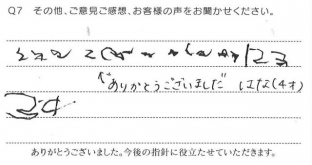 Q7 その他、ご意見ご感想、お客様の声をお聞かせください。
"ありがとうございました" はな(4才)
ありがとうございました。今後の指針に役立たせていただきます。